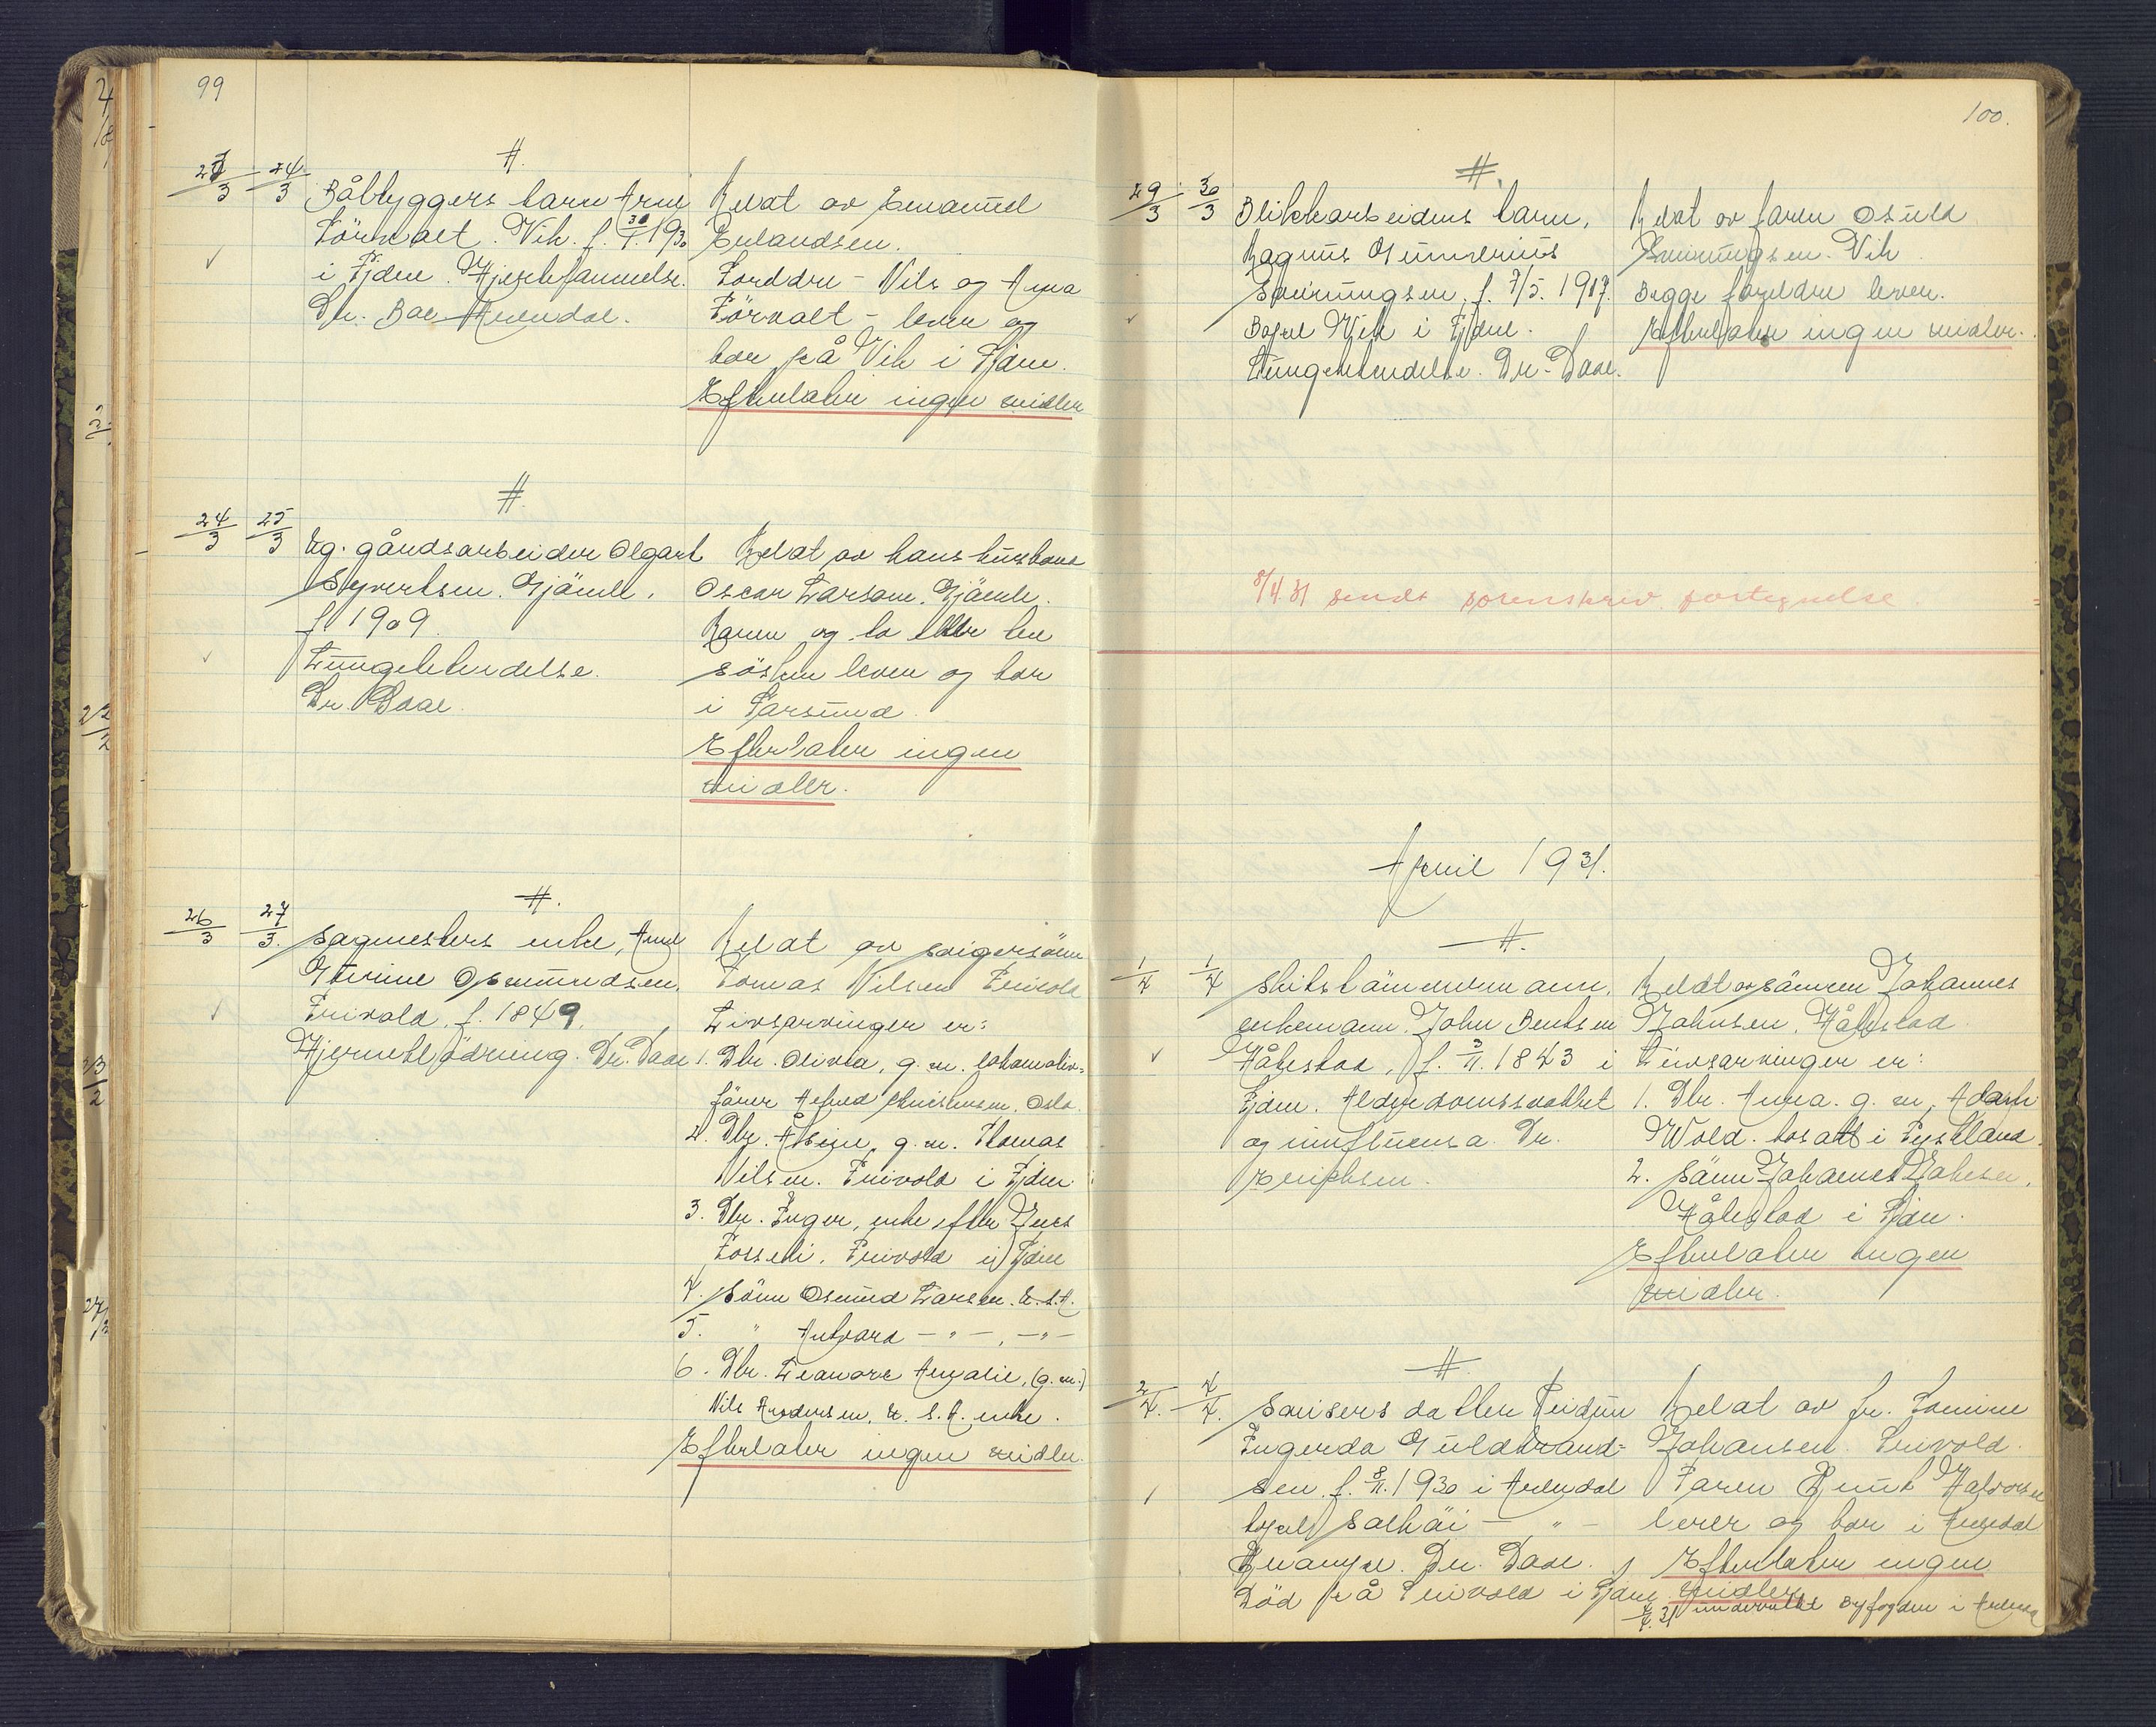 99
#.
23/3 24/3 Båtbyggers barn Arne
Törvalt. Vik. f. 30/1. 1930
i Fjære. Hjerlefammelse.
Dr. Boe Arendal.
Meldt av Emanuel
Erlandsen.
Forældre - Nils og Anna
Törvalt - lever og
bor på Vik i Fjære.
Efterlater ingen midler
#.
24/3 25/3 Ug. gårdsarbeider Olgart
Syvertsen. Gjömle.
f. 1909
Lungebetendelse.
Dr. Daae.
Meldt av hans husbond
Oscar Larsen. Gjömle.
Moren og to eller tre
søsken lever og bor
i Farsund.
Efterlater ingen
midler.
#.
26/3 27/3. Sagmesters enke, Anne
Gurine Osmundsen,
Frivold, f. 1849.
Hjerneblödning. Dr. Daae
Meldt av svigersönn
Tomas Nilsen Frivold
Livsarvinger er:
1. Dtr. Olivia, g. m. lokomotiv-
förer Alfred Christensen. Oslo.
2. Dtr. Alvine, g. m. Thomas
Nilsen. Frivold i Fjære
3. Dtr. Inger, enke efter Jens
Fosseli. Frivold i Fjære
4. Sönn Osmund Larsen. U.S.A.
5. " Antvard - " - , - " -
6. Dtr. Leanore Amalie, (g. m.)
Nils Andersen, U.S.A. enke.
Efterlater ingen midler.
100.
#.
29/3 30/3 Blikkarbeiders barn,
Magnus Gunnerius
Sveinungsen, f. 7/5. 1917.
Bopæl Vik i Fjære.
Lungebetendelse. Dr. Daae.
Meldt av faren Osuld
Sveinungsen. Vik
Begge foreldre lever.
Efterlater ingen midler.
8/4 31 sendt sorenskriv fortegnelse
April 1931.
#.
1/4 1/4 Skibstömmermann,
enkemann. John Bentsen
Håbestad, f. 3/11. 1843 i
Fjære. Alderdomssvakhet
og influensa. Dr.
Erichsen.
Meldt av sönnen Johannes
Johnsen, Håbestad
Livsarvinger er:
1. Dtr. Anna. g. m. Adam
Wold. bosatt i Tyskland.
2. Sönn Johannes Johnsen,
Håbestad i Fjære.
Efterlater ingen
midler.
#.
2/4. 4/4. Snisers datter Reidun
Ingerda Guldbrand-
sen. f. 8/11. 1930 i Arendal
bopæl Solhöi - " -
Krampe. Dr. Daae.
Död på Frivold i Fjære
Meldt av fr. Tomine
Johansen. Frivold.
Faren Knut Halvorsen
lever og bor i Arendal
Efterlater ingen
midler
4/4. 31 underrettet Byfogden i Arendal